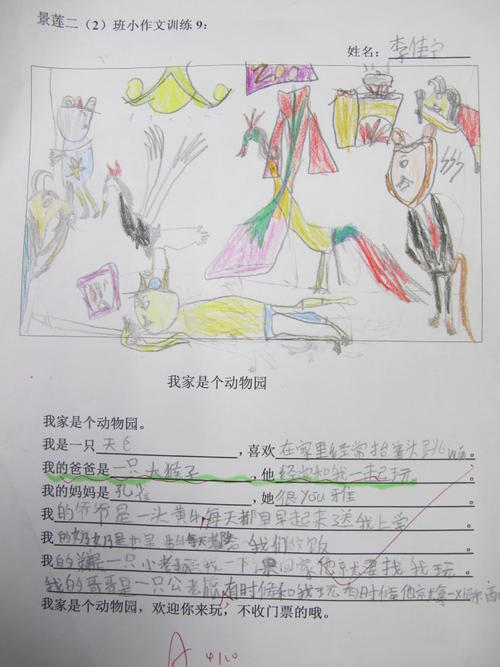 景莲二（2）班小作文训练9：
姓名：李佳宁
ZOO
我家是个动物园
我家是个动物园。
我是一只天它，喜欢在家里经常抬着头到
我的爸爸是一只大猴子，他经常和我一起玩
我的妈妈是孔雀，她很you雅
我的爷爷是一头黄牛每天都早早起来送我上学
我的奶奶也是 每天 我们做饭
我的 是一只小老 我一下课回家他就要找我玩
我的哥哥是一只公老虎有时候和我玩有时候他
我家是个动物园，欢迎你来玩，不收门票的哦。
A 4/10